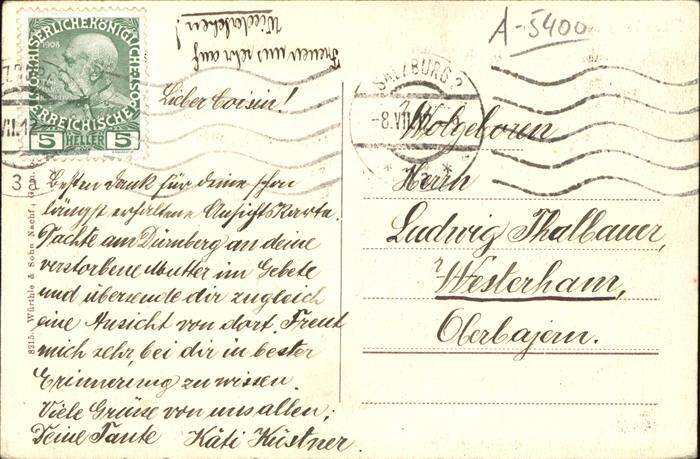 Freuen uns sehr auf
Wiedersehen!
A-5400
KAISERLICHE KÖNIGLICHE
1908
ÖSTERREICHISCHE
5 HELLER 5
SALZBURG 2
-8.VII
3
Lieber Coisin!
Besten Dank für deine schon
längst erhaltene Ansichtskarte.
Dachte am Dürnberg an deine
verstorbene Mutter im Gebete
und übersende dir zugleich
eine Ansicht von dort. Freut
mich sehr, bei dir in bester
Erinnerung zu wissen.
Viele Grüsse von uns allen;
Deine Tante Käti Küstner.
Wolgeboren
Herrn
Ludwig Thalbauer,
Westerham,
Oberbajern.
8215. Würthle & Sohn Nachf.